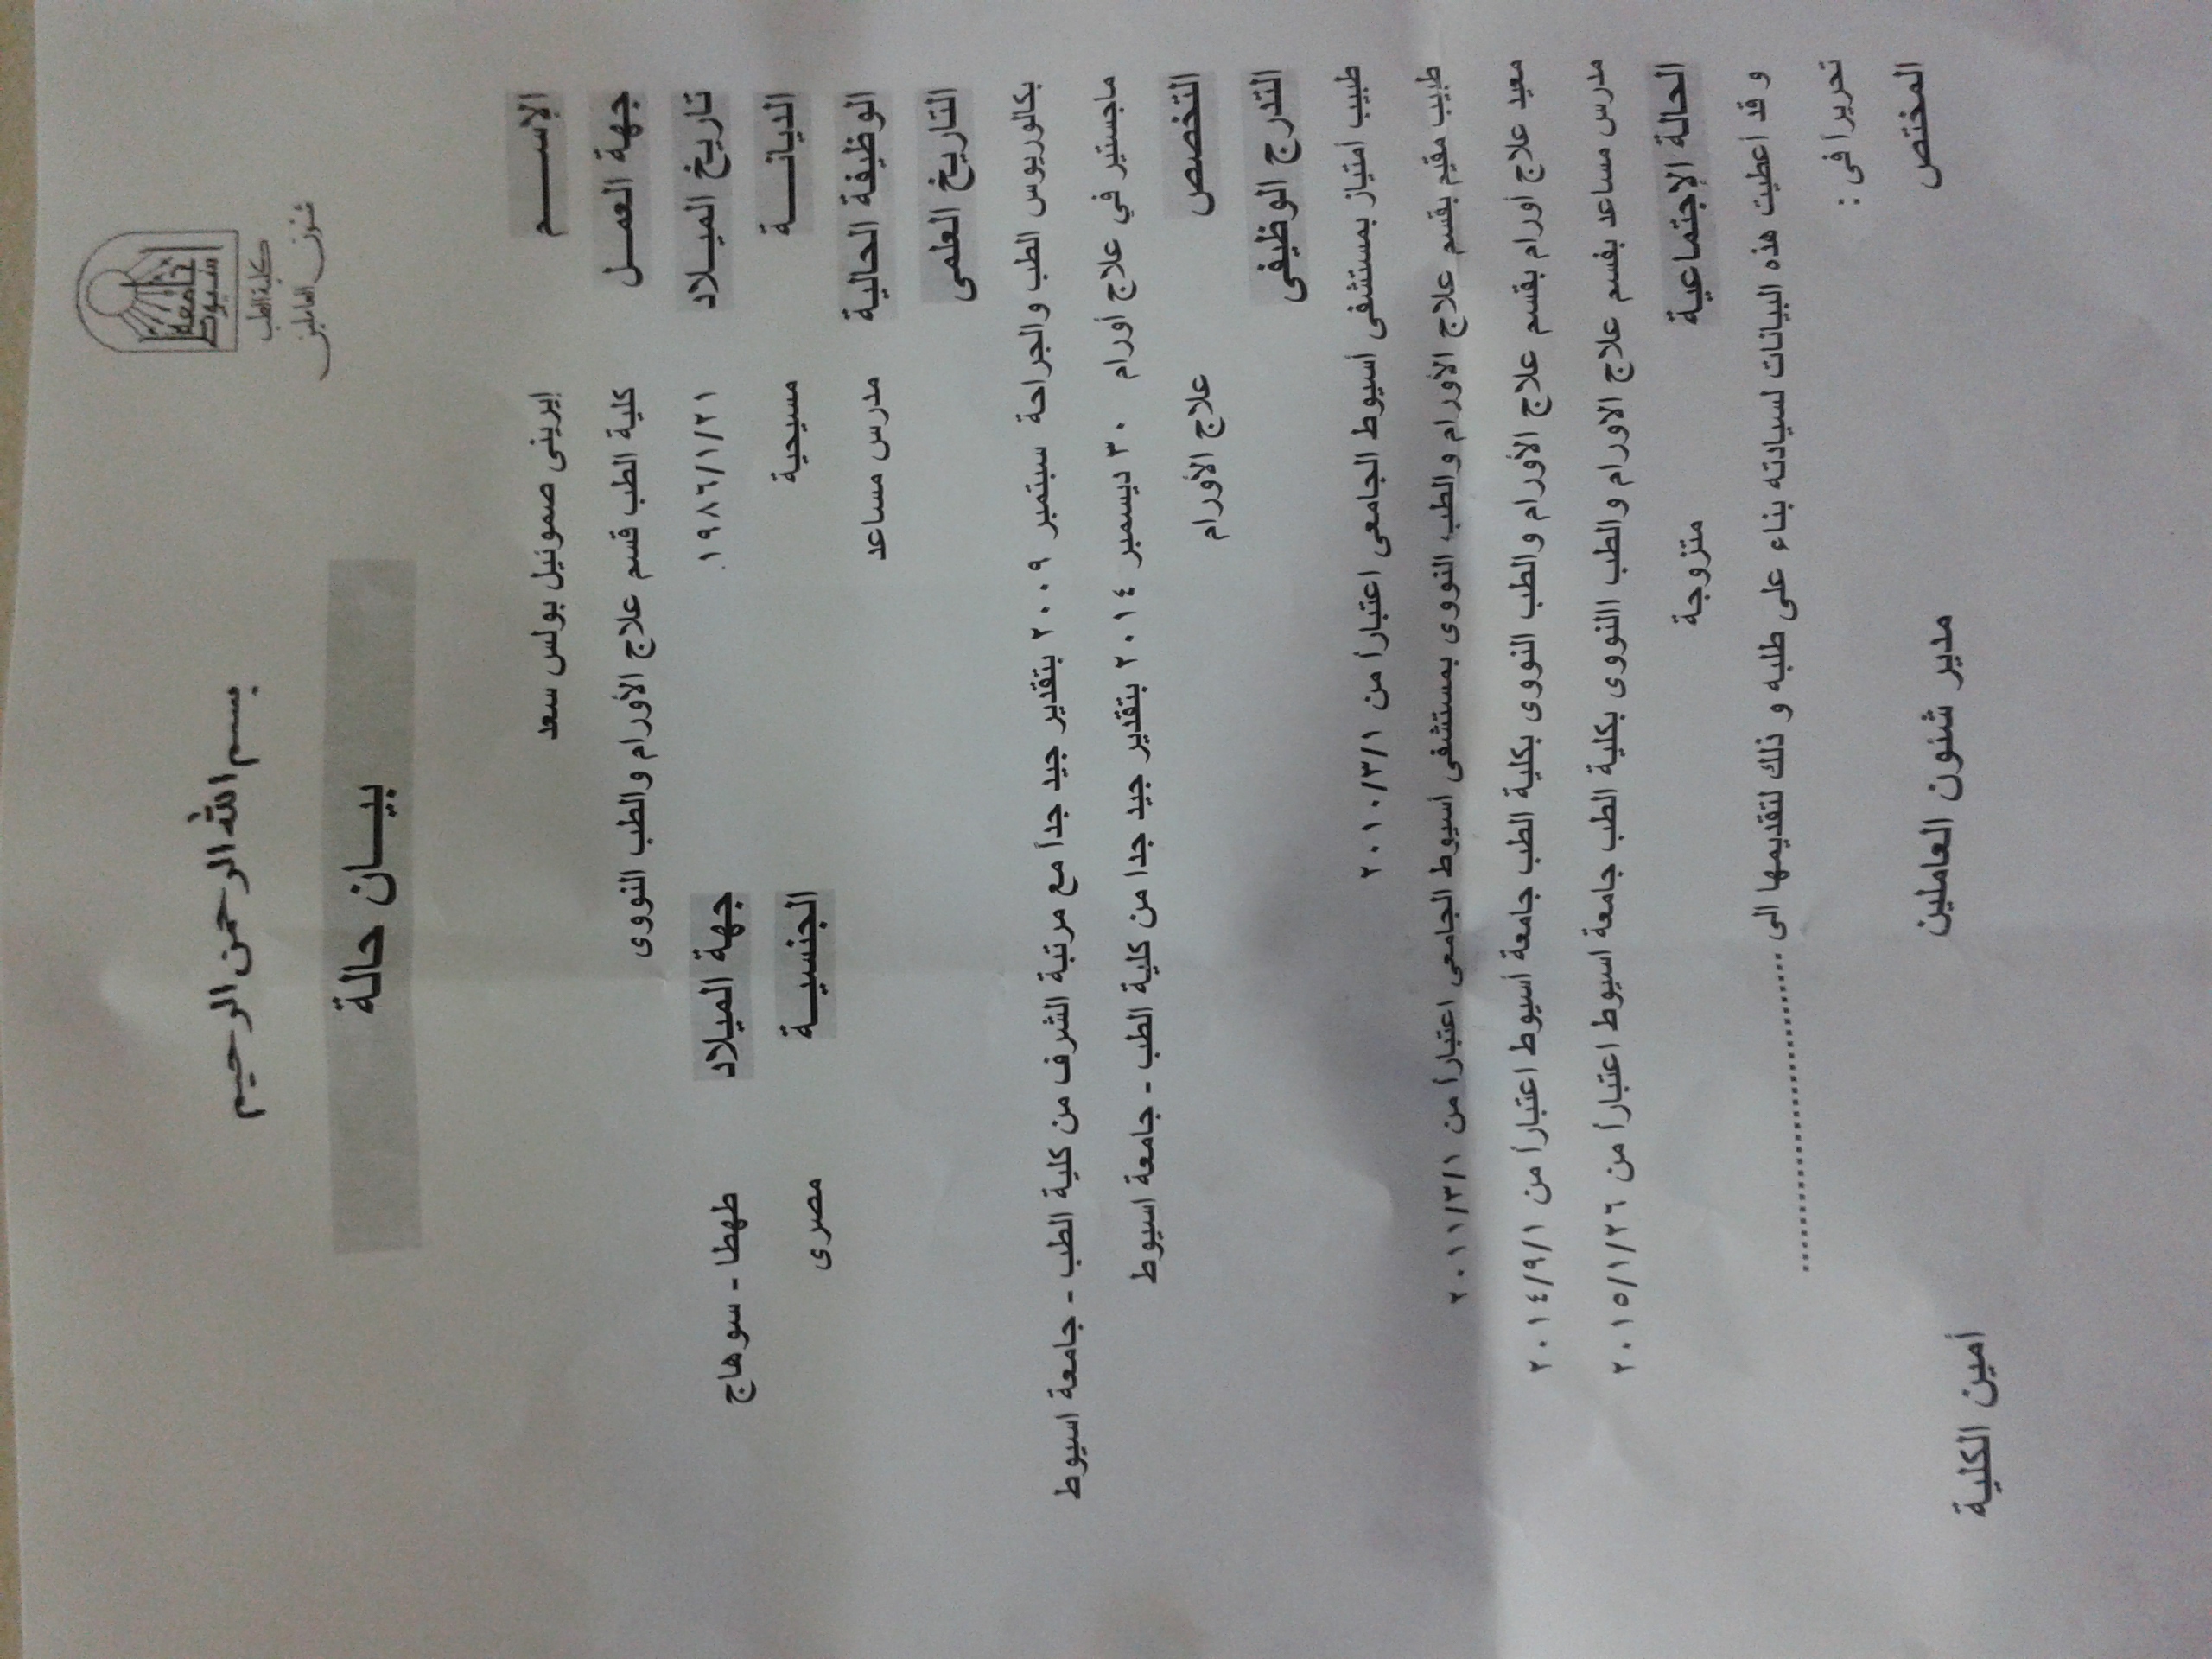 جامعة
اسيوط
كلية الطب
شئون العاملين
بسم الله الرحمن الرحيم
بيـــان حالة
الإســـــم ايرينى صموئيل بولس سعد
جهة العمــل كلية الطب قسم علاج الأورام والطب النووى
تاريخ الميــلاد ١٩٨٦/١/٢١ جهة الميلاد طهطا - سوهاج
الديانـــــة مسيحية الجنسيـــة مصرى
الوظيفة الحالية مدرس مساعد
التاريخ العلمى
بكالوريوس الطب والجراحة سبتمبر ٢٠٠٩ بتقدير جيد جداً مع مرتبة الشرف من كلية الطب - جامعة اسيوط
ماجستير في علاج أورام ٣٠ ديسمبر ٢٠١٤ بتقدير جيد جدا من كلية الطب - جامعة اسيوط
التخصص علاج الأورام
التدرج الوظيفى
طبيب امتياز بمستشفى أسيوط الجامعى اعتباراً من ٢٠١٠/٣/١
طبيب مقيم بقسم علاج الأورام والطب النووى بمستشفى أسيوط الجامعى اعتباراً من ٢٠١١/٣/١
معيد علاج أورام بقسم علاج الأورام والطب النووى بكلية الطب جامعة أسيوط اعتباراً من ٢٠١٤/٩/١
مدرس مساعد بقسم علاج الاورام والطب االنووى بكلية الطب جامعة اسيوط اعتباراً من ٢٠١٥/١/٢٦
الحالة الإجتماعية متزوجة
و قد اعطيت هذه البيانات لسيادته بناء على طلبه و ذلك لتقديمها الى ..........................................
تحريرا فى :
المختص مدير شئون العاملين أمين الكلية